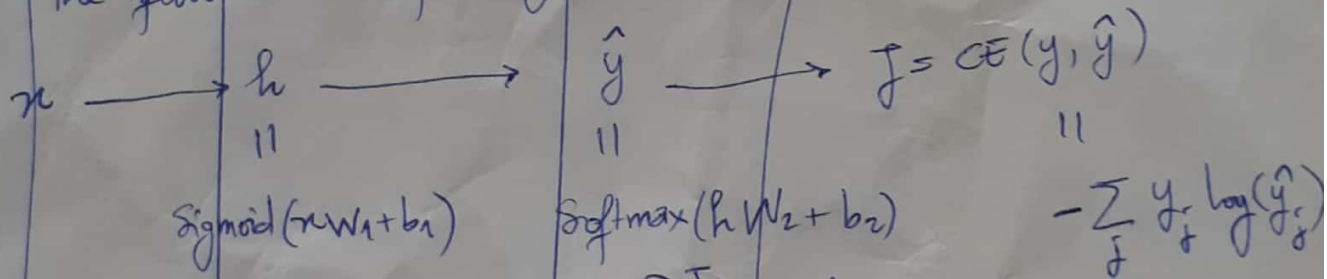 x → h → ŷ → J = CE(y, ŷ)
|| || ||
Sigmoid(xW₁+b₁) Softmax(hW₂+b₂) -∑_j y_j log(ŷ_j)